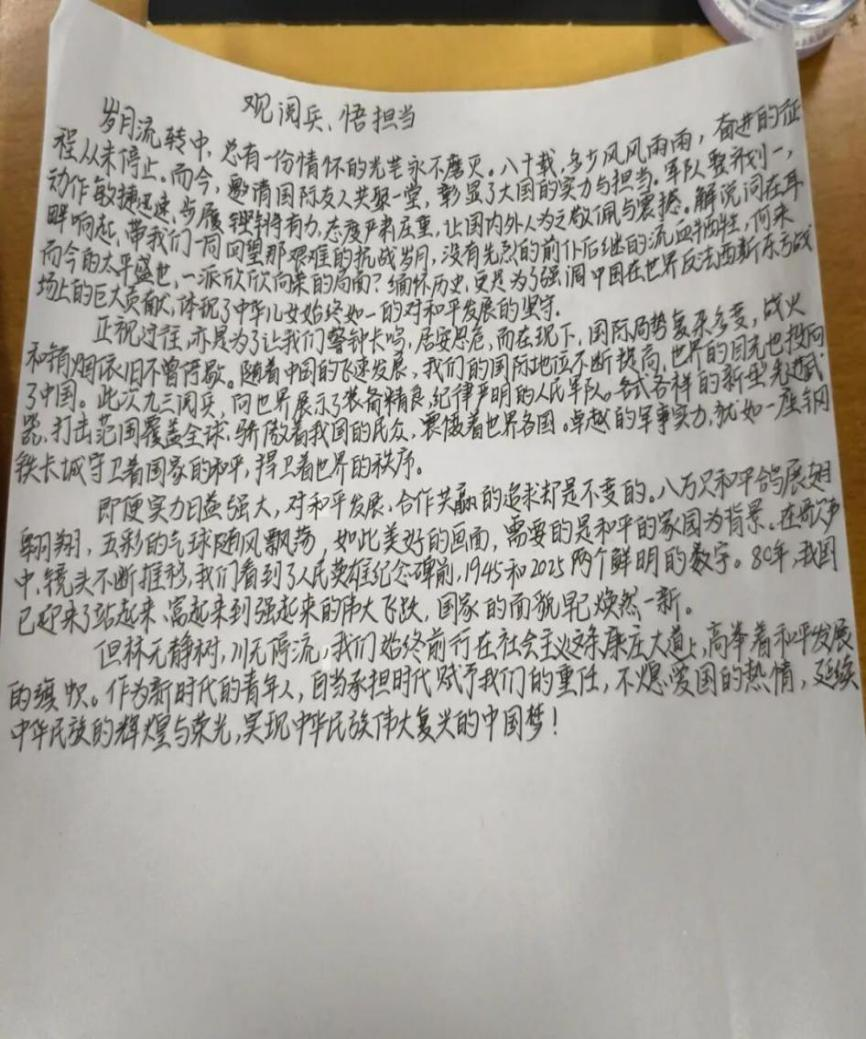 观阅兵、悟担当
岁月流转中，总有一份情怀的光芒永不磨灭。八十载，多少风风雨雨，奋进的征
程从未停止。而今，邀请国际友人共聚一堂，彰显了大国的实力与担当。军队整齐划一，
动作敏捷迅速、步履铿锵有力，态度严肃庄重，让国内外人为之敬佩与震撼。解说词在耳
畔响起，带我们一同回望那艰难的抗战岁月，没有先烈的前仆后继的流血牺牲，何来
而今的太平盛世，一派欣欣向荣的局面？缅怀历史，更是为了强调中国在世界反法西斯东方战
场上的巨大贡献，体现了中华儿女始终如一的对和平发展的坚守。
正视过往，亦是为了让我们警钟长鸣，居安思危，而在现下，国际局势复杂多变，战火
和硝烟依旧不曾停歇。随着中国的飞速发展，我们的国际地位不断提高，世界的目光也投向
了中国。此次九三阅兵，向世界展示了装备精良，纪律严明的人民军队。各式各样的新型先进武
器，打击范围覆盖全球，骄傲着我国的民众，震慑着世界各国。卓越的军事实力，就如一座钢
铁长城守卫着国家的和平，捍卫着世界的秩序。
即便实力日益强大，对和平发展、合作共赢的追求却是不变的。八万只和平鸽展翅
翱翔，五彩的气球随风飘荡，如此美好的画面，需要的是和平的家园为背景。在歌声
中，镜头不断推移，我们看到了人民英雄纪念碑前，1945和2025两个鲜明的数字。80年，我国
已迎来了站起来、富起来到强起来的伟大飞跃，国家的面貌早已焕然一新。
但林无静树，川无停流，我们始终前行在社会主义这条康庄大道上，高举着和平发展
的旗帜。作为新时代的青年人，自当承担时代赋予我们的重任，不熄爱国的热情，延续
中华民族的辉煌与荣光，实现中华民族伟大复兴的中国梦！